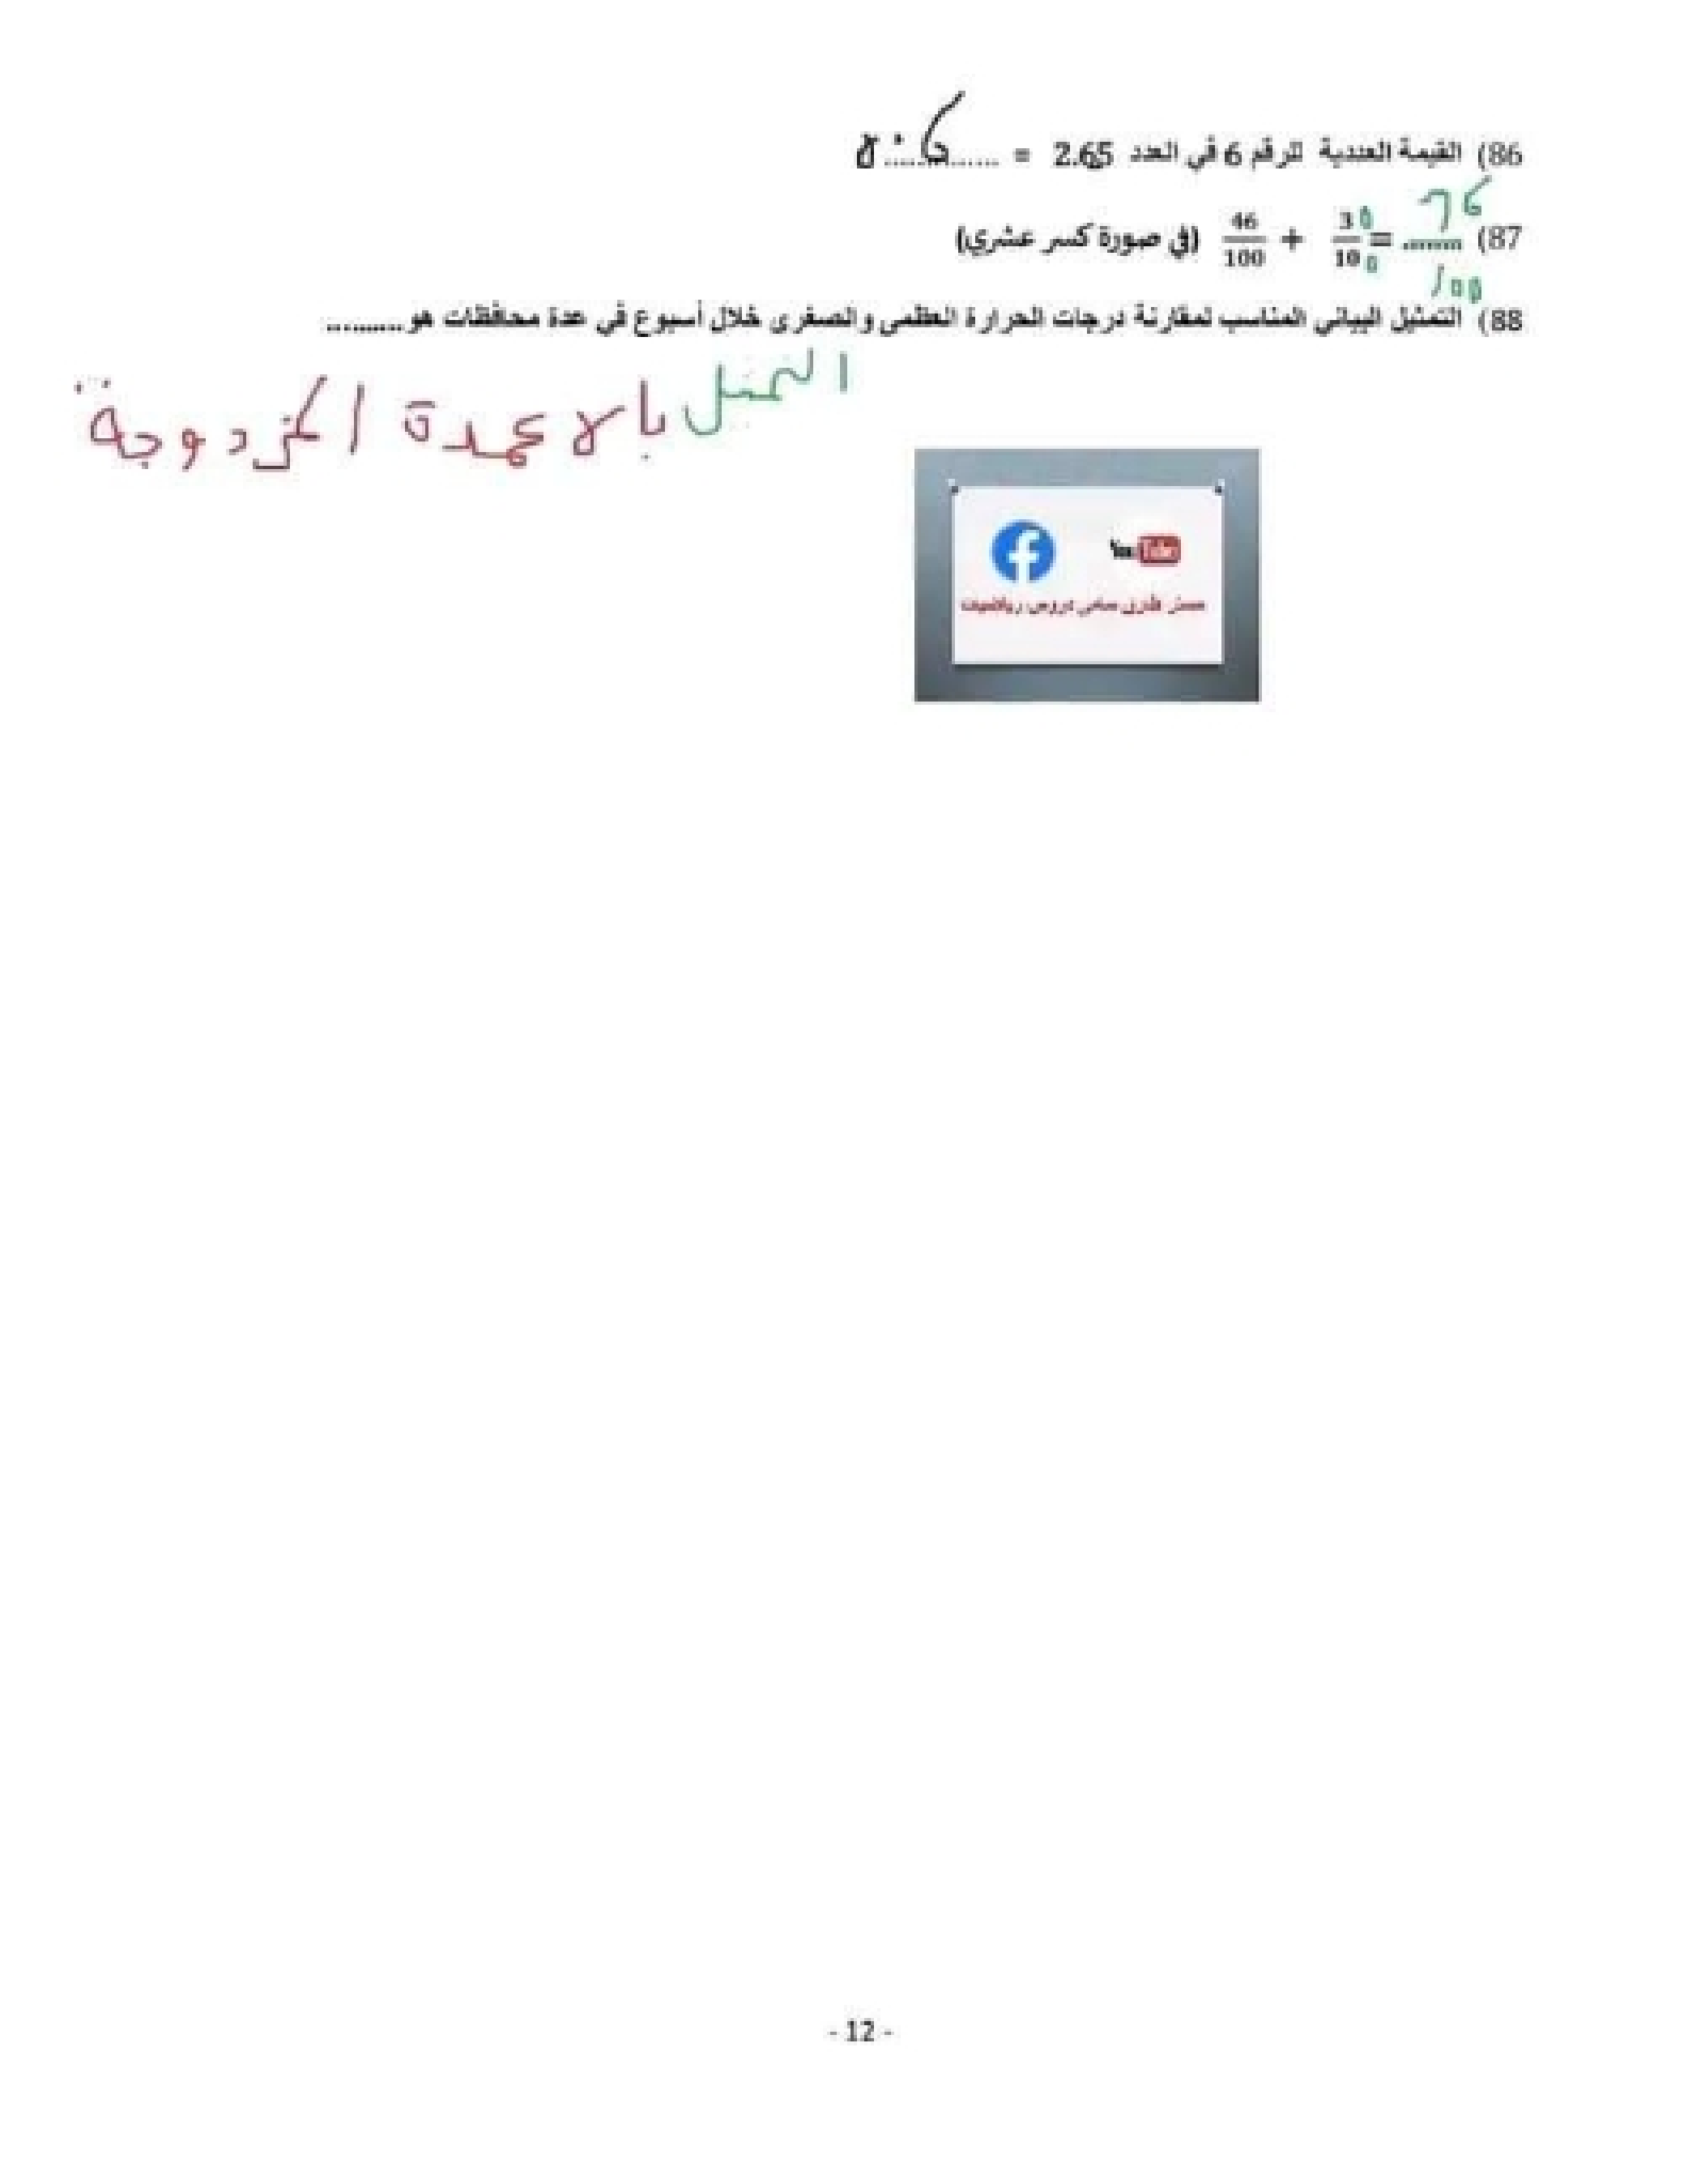 86) القيمة العددية للرقم 6 في العدد 2.65 = ..............
87) 46/100 + 30/100 = 76/100 (في صورة كسر عشري)
88) التمثيل البياني المناسب لمقارنة درجات الحرارة العظمى والصغرى خلال أسبوع في عدة محافظات هو..........
بالاعمدة المزدوجة
YouTube
دروس رياضيات
- 12 -